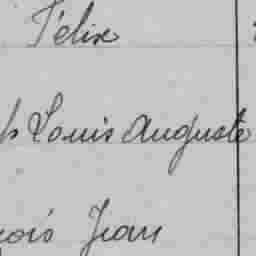 Félix
Louis Auguste
Jean